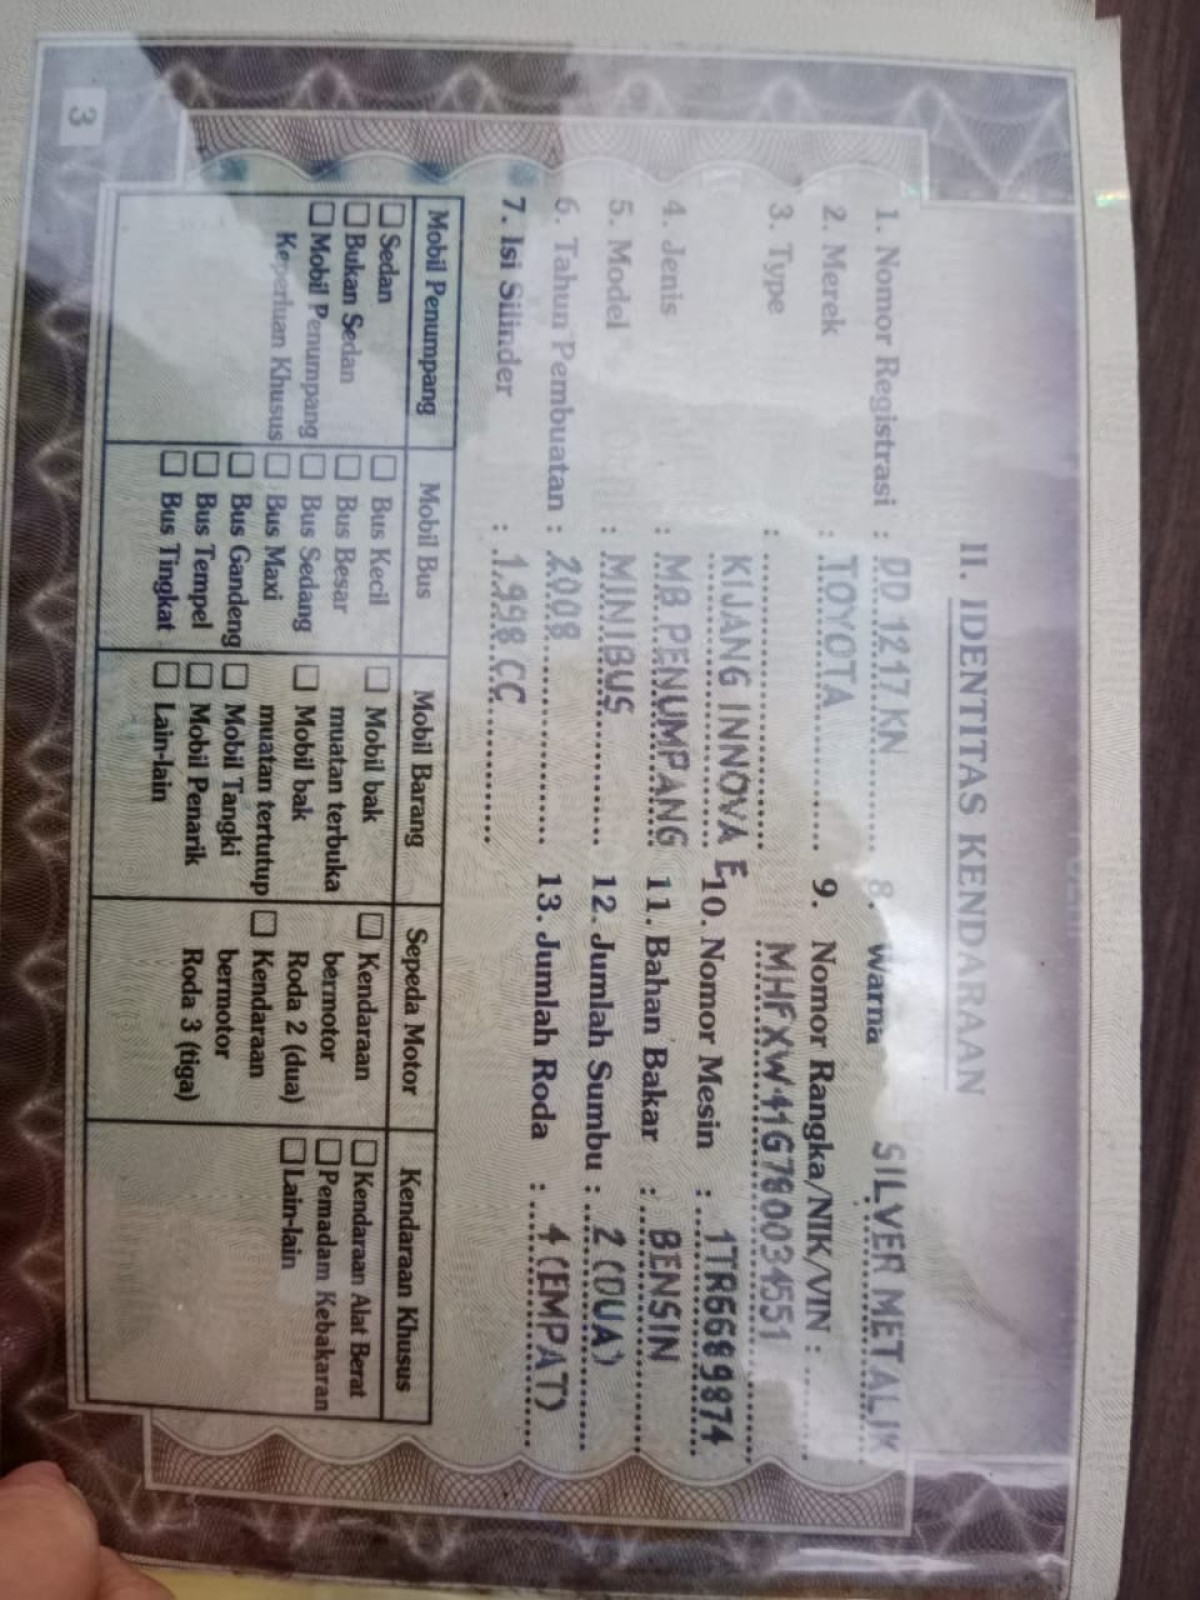 II. IDENTITAS KENDARAAN
1. Nomor Registrasi : DD 1217 KN
2. Merek : TOYOTA
3. Type :
KIJANG INNOVA E
4. Jenis : MB PENUMPANG
5. Model : MINIBUS
6. Tahun Pembuatan : 2008
7. Isi Silinder : 1.998 CC
8. Warna SILVER METALIK
9. Nomor Rangka/NIK/VIN :
MHFXW41G780034551
10. Nomor Mesin : 1TR6689874
11. Bahan Bakar : BENSIN
12. Jumlah Sumbu : 2 (DUA)
13. Jumlah Roda : 4 (EMPAT)
Mobil Penumpang
☐ Sedan
☐ Bukan Sedan
☐ Mobil Penumpang
Keperluan Khusus
Mobil Bus
☐ Bus Kecil
☐ Bus Besar
☐ Bus Sedang
☐ Bus Maxi
☐ Bus Gandeng
☐ Bus Tempel
☐ Bus Tingkat
Mobil Barang
☐ Mobil bak
muatan terbuka
☐ Mobil bak
muatan tertutup
☐ Mobil Tangki
☐ Mobil Penarik
☐ Lain-lain
Sepeda Motor
☐ Kendaraan
bermotor
Roda 2 (dua)
☐ Kendaraan
bermotor
Roda 3 (tiga)
Kendaraan Khusus
☐ Kendaraan Alat Berat
☐ Pemadam Kebakaran
☐ Lain-lain
3